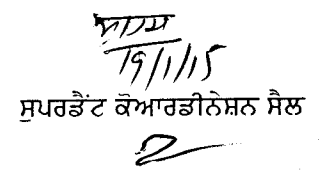 19/1/15
ਸੁਪਰਡੈਂਟ ਕੋਆਰਡੀਨੇਸ਼ਨ ਸੈਲ